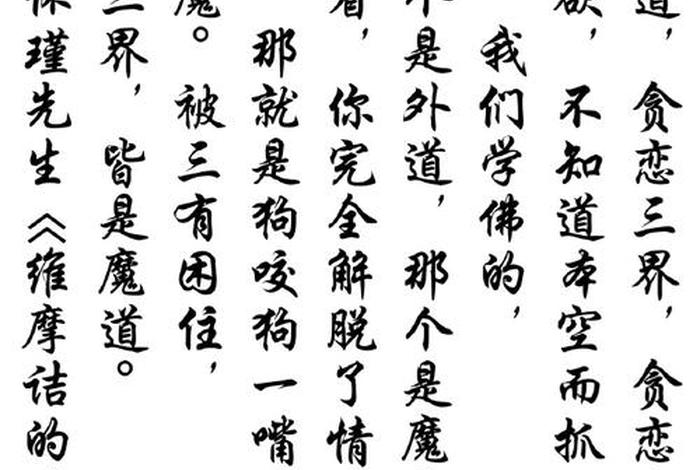 道，贪恋三界，贪恋
欲，不知道本空而抓
我们学佛的，
不是外道，那个是魔
看，你完全解脱了情
那就是狗咬狗一嘴
魔。被三有困住，
三界，皆是魔道。
怀瑾先生《维摩诘的